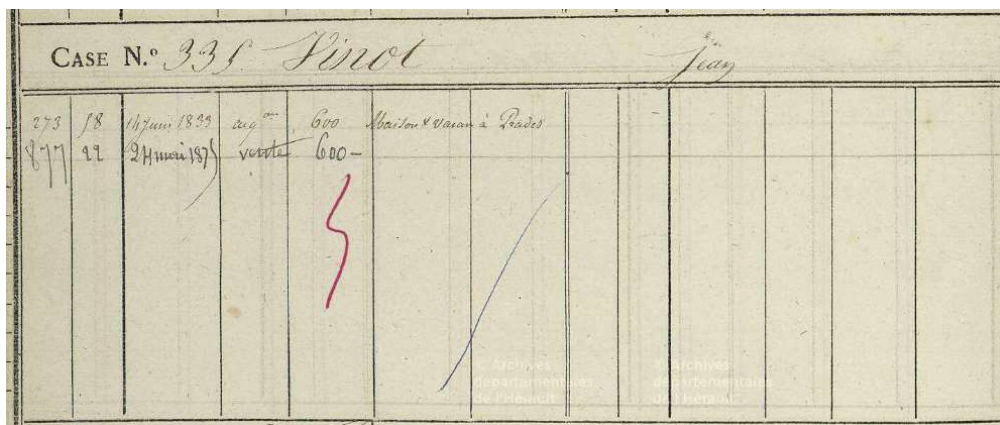 CASE N.º 335 Vinot Jean
273 58 14 juin 1833 acqon 600 Maison & vacan à Prades
877 22 24 mai 1875 vente 600 –
© Archives départementales de l'Hérault © Archives départementales de l'Hérault